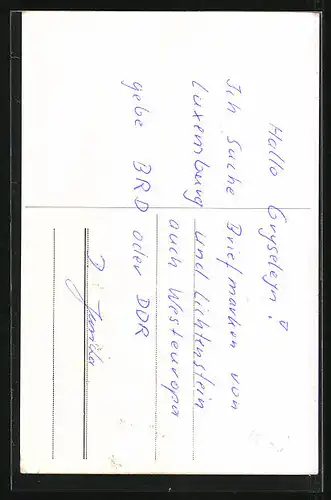 Hallo Gryselegn!
Ich suche Briefmarken von
Luxemburg und Lichtenstein
auch Westeuropa
gebe BRD oder DDR